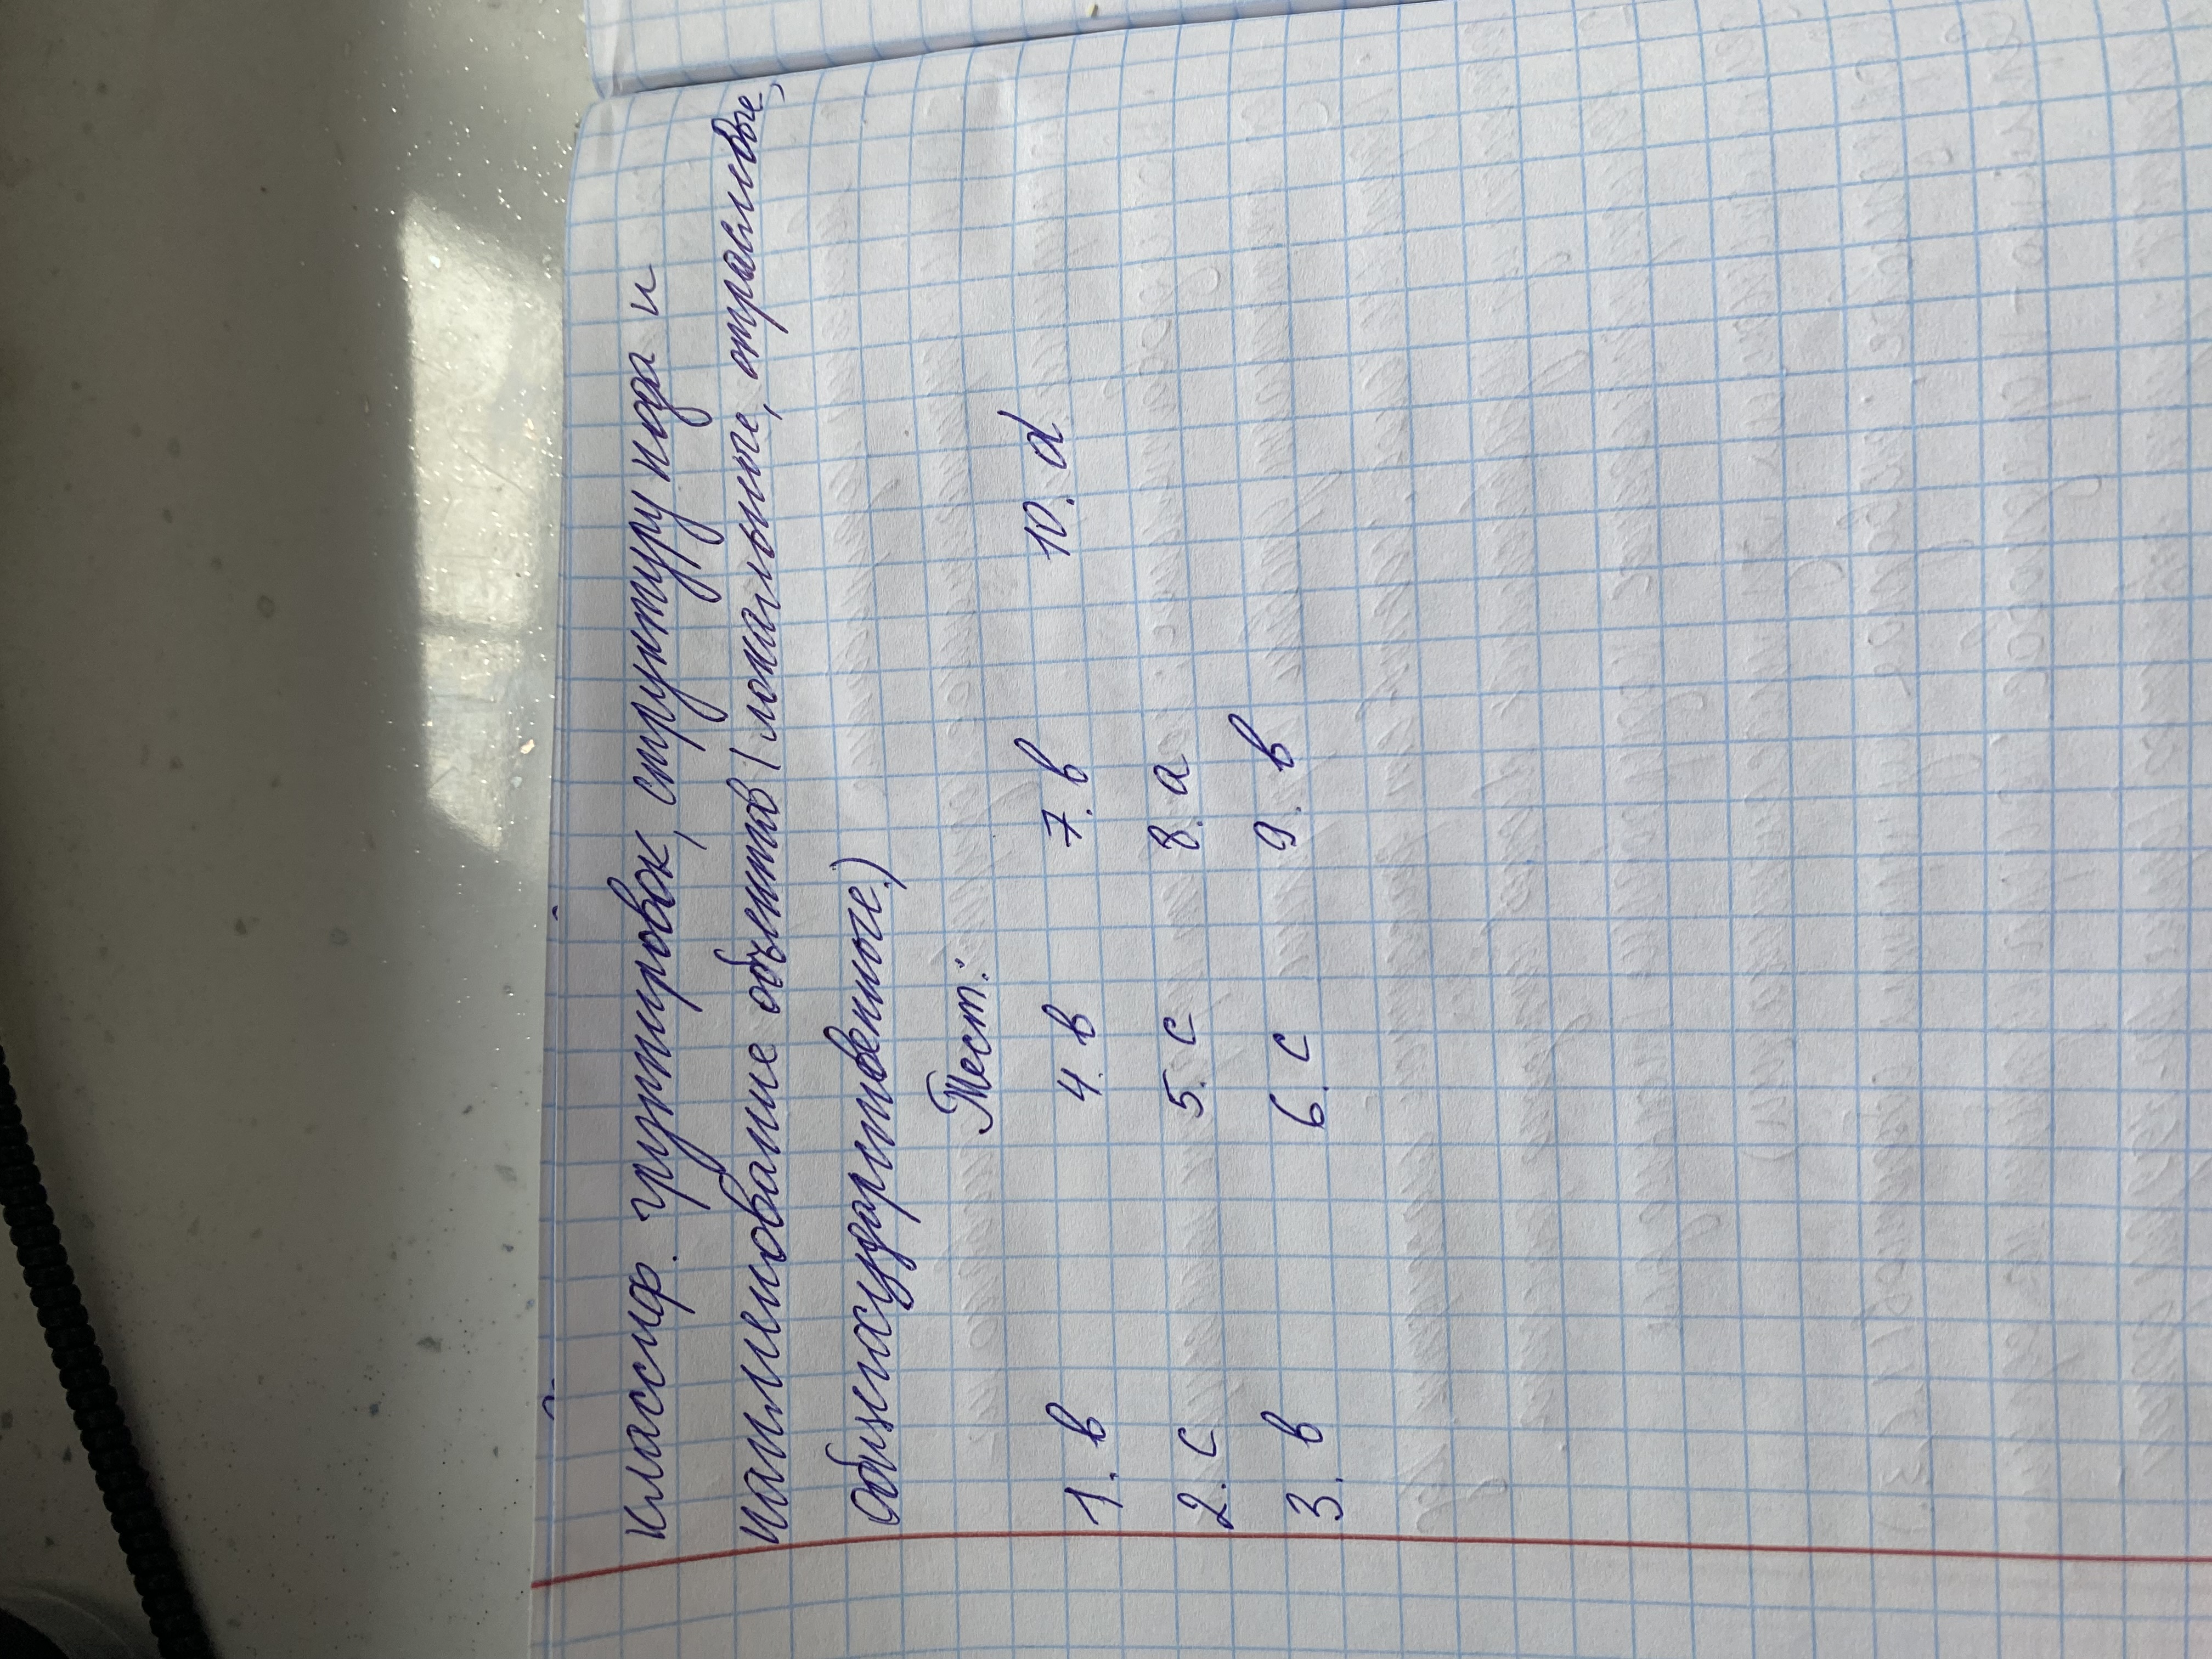 классиф. группировок, структуру кода и
наименование объектов (локальные, отраслевые,
общегосударственные.)
Тест:
1. в 4. в 7. в 10. d
2. с 5. с 8. а
3. в 6. с 9. в